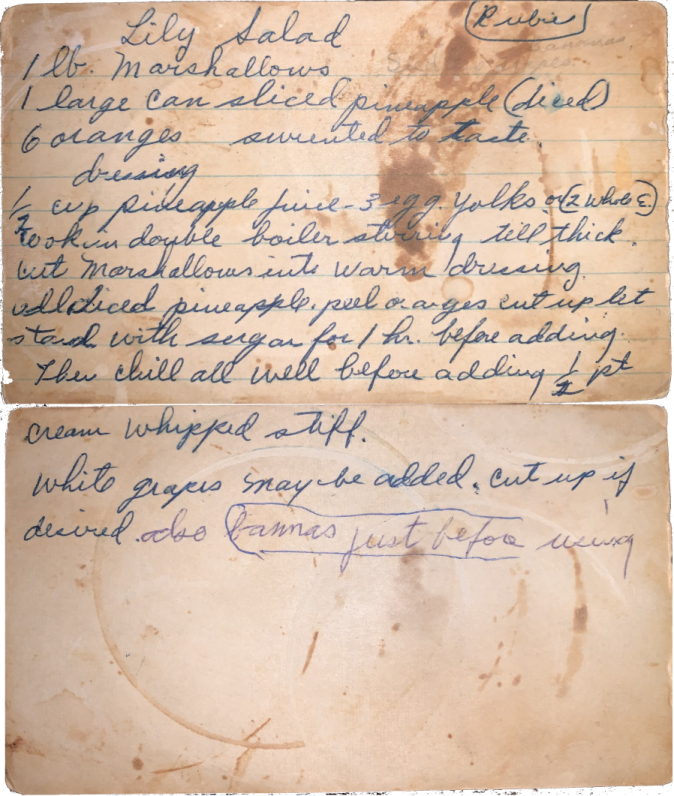 Lily Salad (Rubie)
1 lb. Marshallows
1 large can sliced pineapple (diced)
6 oranges swented to taste.
dressing
1/2 cup pineapple juice - 3 egg yolks or (2 whole E.)
Cook in double boiler stirring till thick.
cut Marshallows into warm dressing.
add diced pineapple. peel oranges cut up let
stand with sugar for 1 hr. before adding.
Then chill all well before adding 1/2 pt
cream whipped stiff.
White grapes may be added. cut up if
desired. also bannas just before using